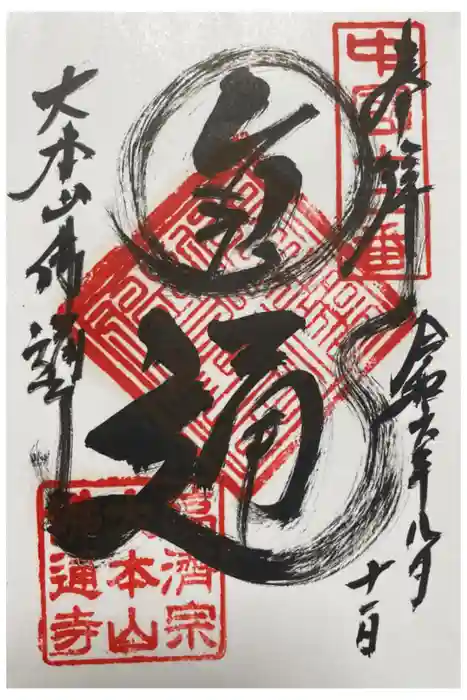 奉拝
令和六年八月
十一日
中国十二番
通
大本山佛通寺
臨濟宗
大本山
佛通寺